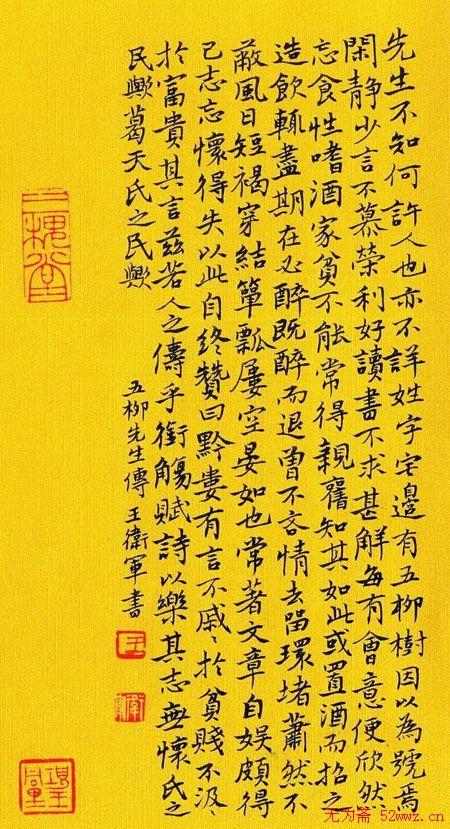 先生不知何許人也亦不詳姓字宅邊有五柳樹因以為號焉
閑靜少言不慕榮利好讀書不求甚解每有會意便欣然
忘食性嗜酒家貧不能常得親舊知其如此或置酒而招之
造飲輒盡期在必醉既醉而退曾不吝情去留環堵蕭然不
蔽風日短褐穿結簞瓢屢空晏如也常著文章自娛頗得
己志忘懷得失以此自終贊曰黔婁有言不戚〻於貧賤不汲〻
於富貴其言茲若人之儔乎銜觴賦詩以樂其志無懷氏之
民歟葛天氏之民歟
五柳先生傳 王衛軍書
王
衛軍
三槐堂
无为斋 52wwz.cn